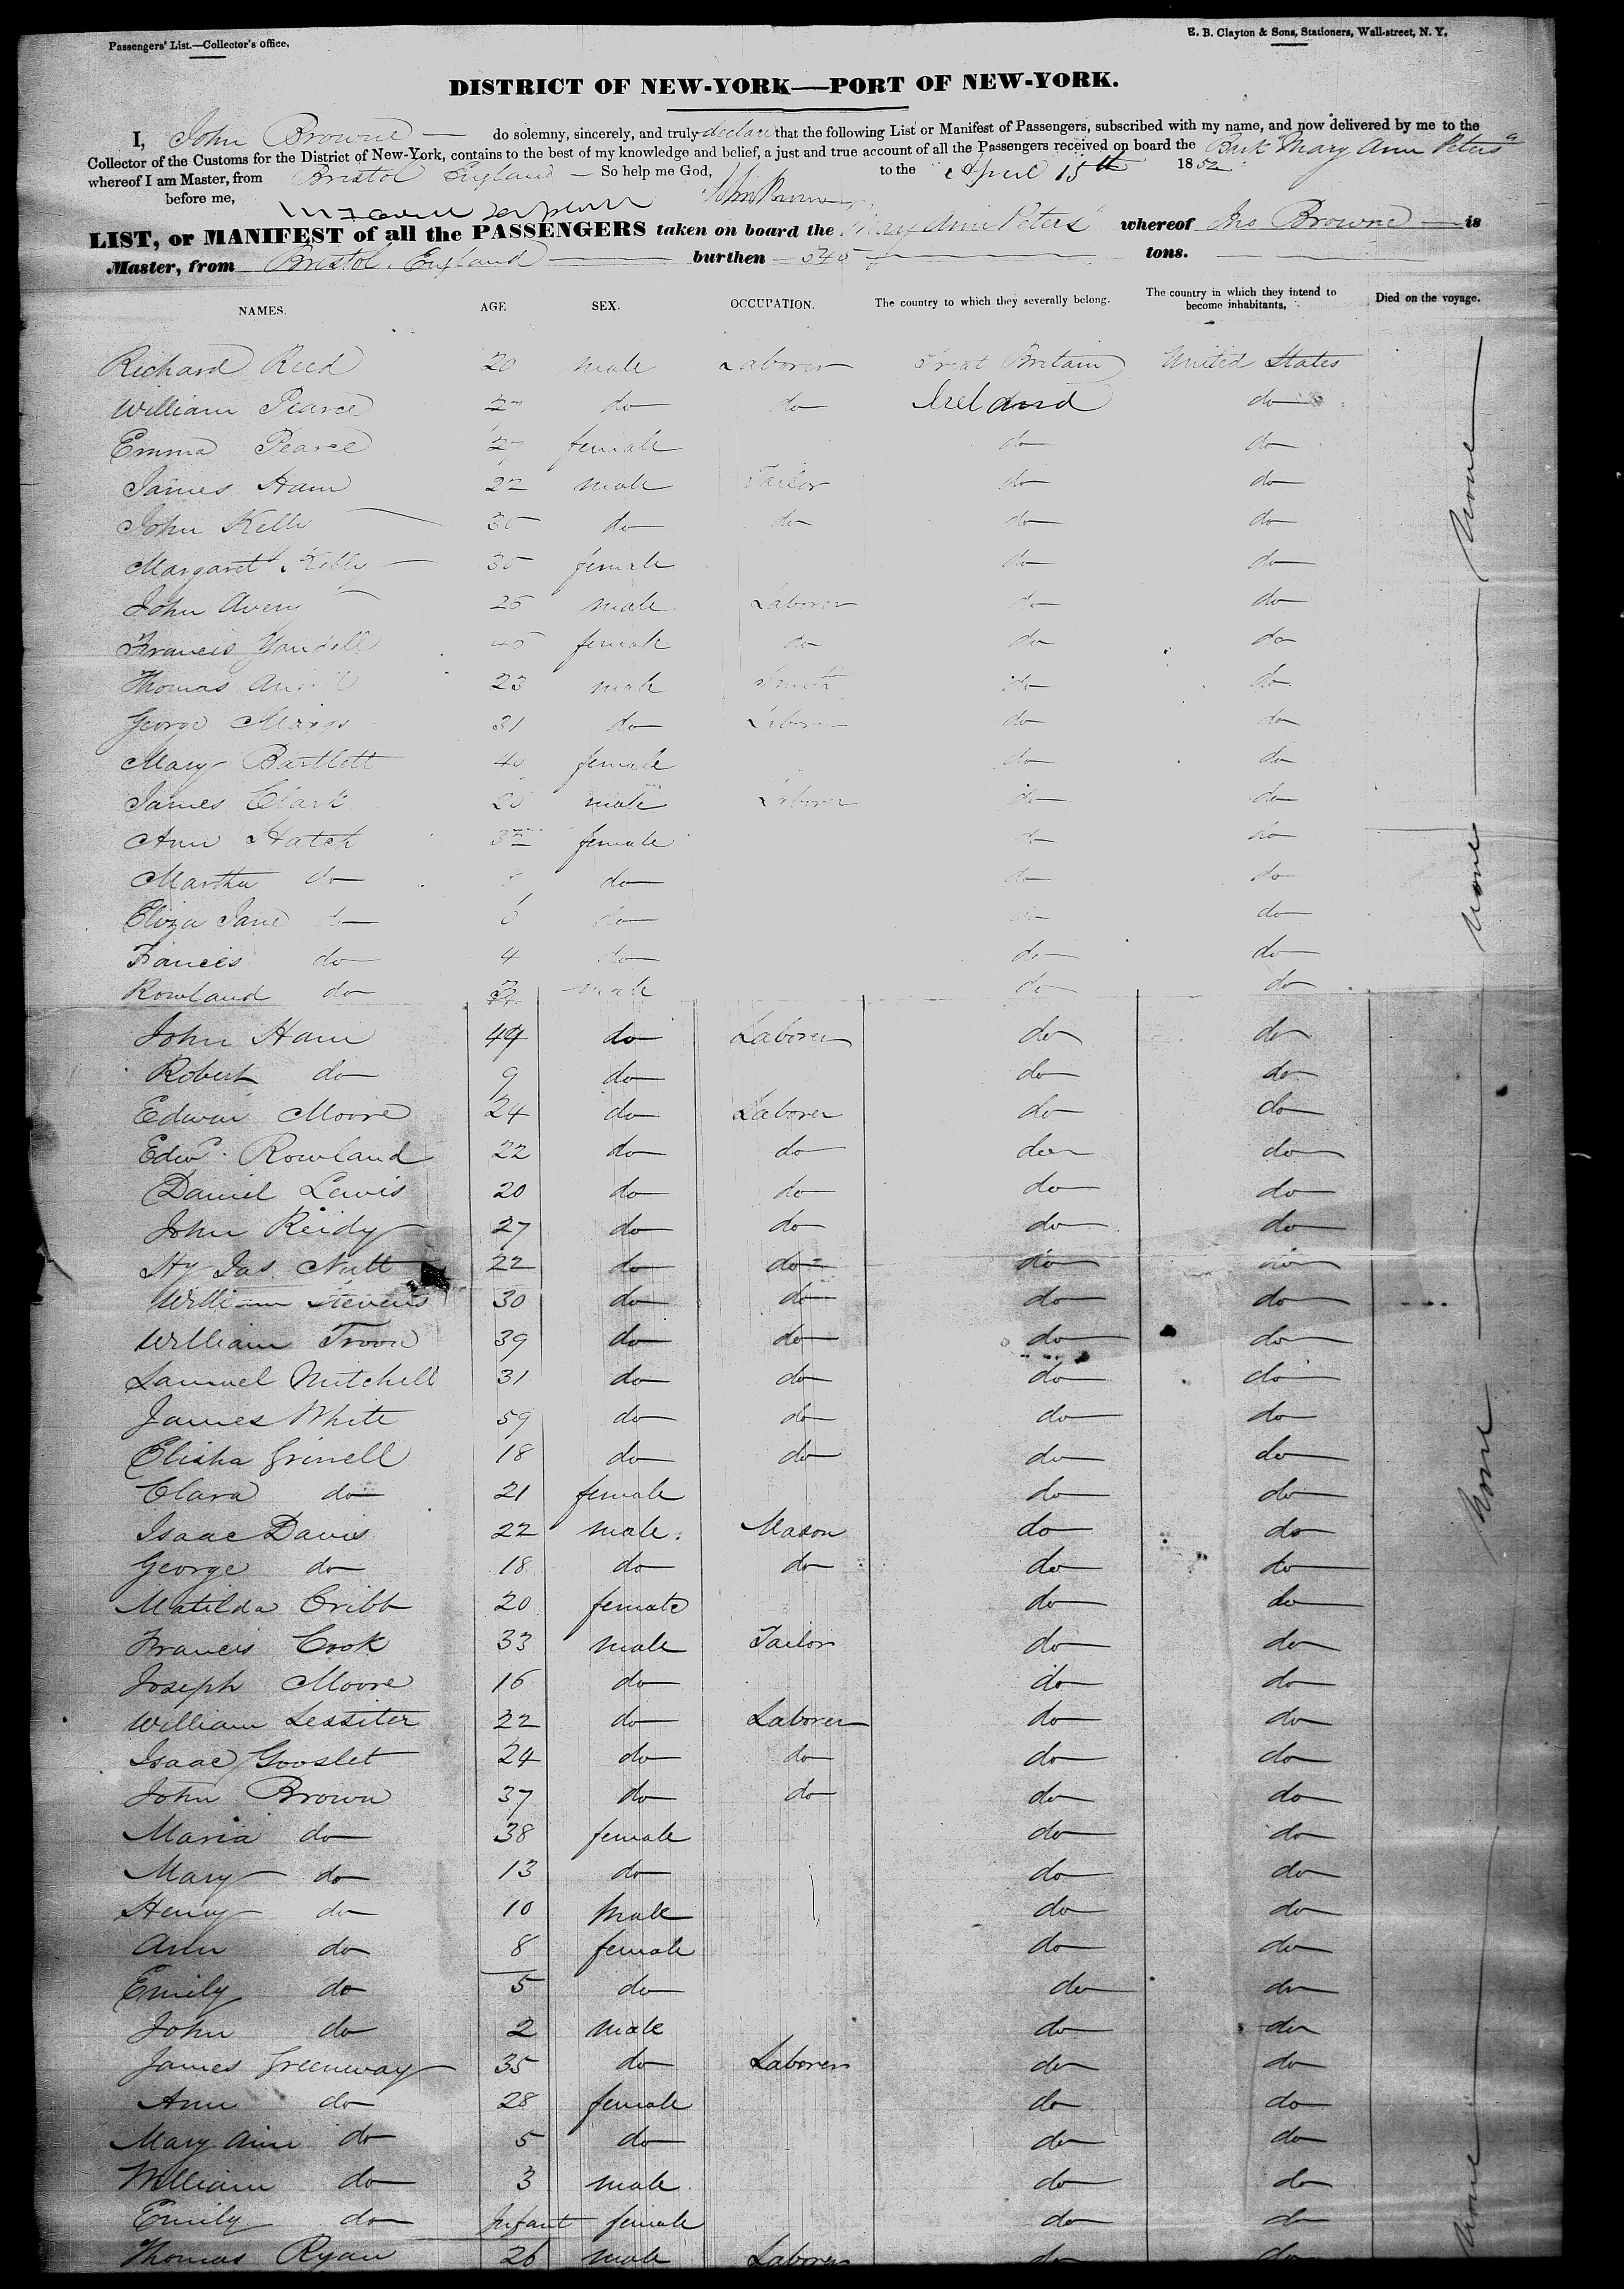 Passengers' List.—Collector's office.
E. B. Clayton & Sons, Stationers, Wall-street, N. Y.
DISTRICT OF NEW-YORK—PORT OF NEW-YORK.
I, John Browne do solemny, sincerely, and truly declare that the following List or Manifest of Passengers, subscribed with my name, and now delivered by me to the
Collector of the Customs for the District of New-York, contains to the best of my knowledge and belief, a just and true account of all the Passengers received on board the Bark Mary Ann Peters
whereof I am Master, from Bristol England So help me God, to the April 15th 1852
before me, Jno Browne
LIST, or MANIFEST of all the PASSENGERS taken on board the Mary Ann Peters whereof Jno Browne is
Master, from Bristol, England burthen tons.
NAMES. AGE SEX. OCCUPATION. The country to which they severally belong. The country in which they intend to become inhabitants, Died on the voyage.
Richard Reed 20 male Laborer Great Britain United States
William Pearce 27 do do Ireland do
Emma Pearce 27 female do do
James Ham 22 male Tailor do do
John Kelly 35 do do do do
Margaret Kelly 35 female do do
John Avery 25 male Laborer do do
Francis Yandell 45 female do do do
Thomas 23 male Smith do do
George 31 do Laborer do do
Mary Bartlett 40 female do do
James Clark male Laborer do do
Ann Hatch 32 female do do
Martha do do do do
Eliza Jane do 6 do do do
Francis do 4 do do do
Rowland do male do do
John Ham 49 do Laborer do do
Robert do 9 do do do
Edwin Moore 24 do Laborer do do
Edwd. Rowland 22 do do do do
Daniel Lewis 20 do do do do
John Reidy 27 do do do do
Hy Jas. Nutt 22 do do do do
William Stevens 30 do do do do
William Troon 39 do do do do
Samuel Mitchell 31 do do do do
James White 59 do do do do
Elisha Grinell 18 do do do do
Clara do 21 female do do
Isaac Davis 22 male. Mason do do
George do 18 do do do do
Matilda Cribb 20 female do do
Francis Cook 33 male Tailor do do
Joseph Moore 16 do do do
William Lessiter 22 do Laborer do do
Isaac Gooslet 24 do do do do
John Brown 37 do do do do
Maria do 38 female do do
Mary do 13 do do do
Henry do 10 Male do do
Ann do 8 female do do
Emily do 5 do do do
John do 2 male do do
James Greenway 35 do Laborer do do
Ann do 28 female do do
Mary Ann do 5 do do do
William do 3 male do do
Emily do Infant female do do
Thomas Ryan 26 male Laborer do do
None
None
None
None